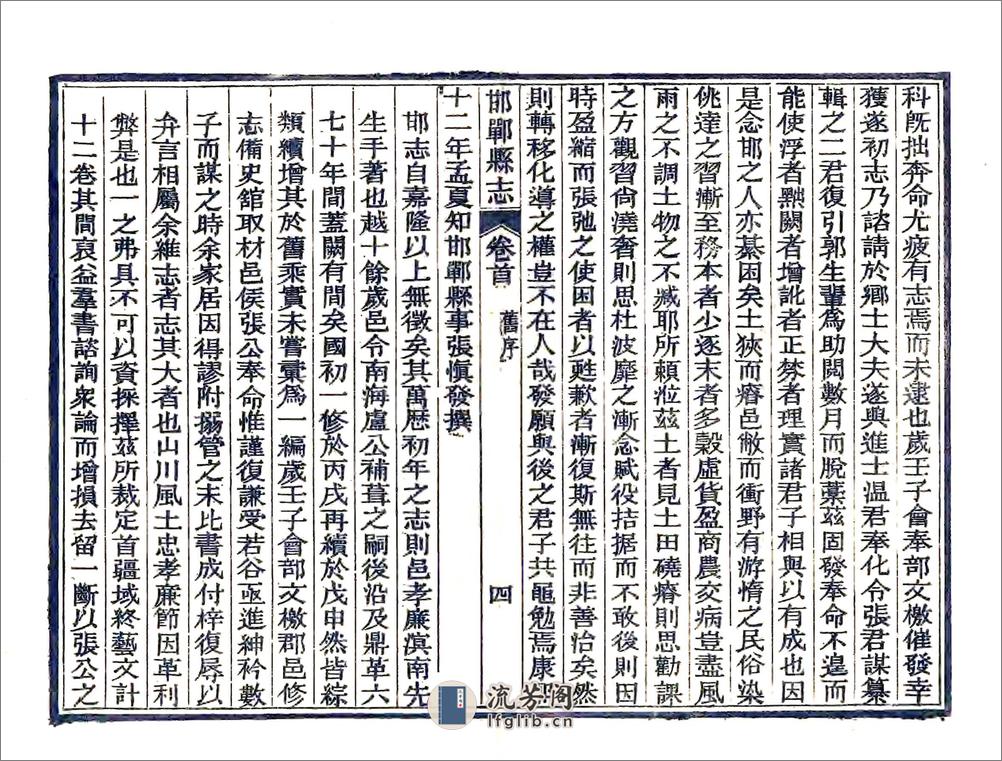 科旣拙奔命尤疲有志焉而未逮也歲壬子會奉部文檄催發幸
獲遂初志乃諮請於鄉士大夫遂與進士温君奉化令張君謀纂
輯之二君復引郭生輩爲助閱數月而脫藁茲固發奉命不遑而
能使浮者黜闕者增訛者正棼者理實諸君子相與以有成也因
是念邯之人亦綦困矣土狹而瘠邑敝而衝野有游惰之民俗染
佻達之習漸至務本者少逐末者多穀虛貨盈商農交病豈盡風
雨之不調土物之不臧耶所賴涖茲土者見土田磽瘠則思勸課
之方觀習尙澆奢則思杜波靡之漸念賦役拮据而不敢後則因
時盈縮而張弛之使困者以甦歉者漸復斯無往而非善治矣然
則轉移化導之權豈不在人哉發願與後之君子共黽勉焉康熙
邯鄲縣志 卷首 舊序 四
十二年孟夏知邯鄲縣事張愼發撰
邯志自嘉隆以上無徵矣其萬歷初年之志則邑孝廉滨南先
生手著也越十餘歲邑令南海盧公補葺之嗣後沿及鼎革六
七十年間蓋闕有間矣國初一修於丙戌再續於戊申然皆綜
類續增其於舊乘實未嘗彙爲一編歲壬子會部文檄郡邑修
志備史館取材邑侯張公奉命惟謹復謙受若谷亟進紳衿數
子而謀之時余家居因得謬附搦管之末比書成付梓復辱以
弁言相屬余維志者志其大者也山川風土忠孝廉節因革利
弊是也一之弗具不可以資採擇茲所裁定首疆域終藝文計
十二卷其間裒益羣書諮詢衆論而增損去留一斷以張公之
流芳阁
lfglib.cn